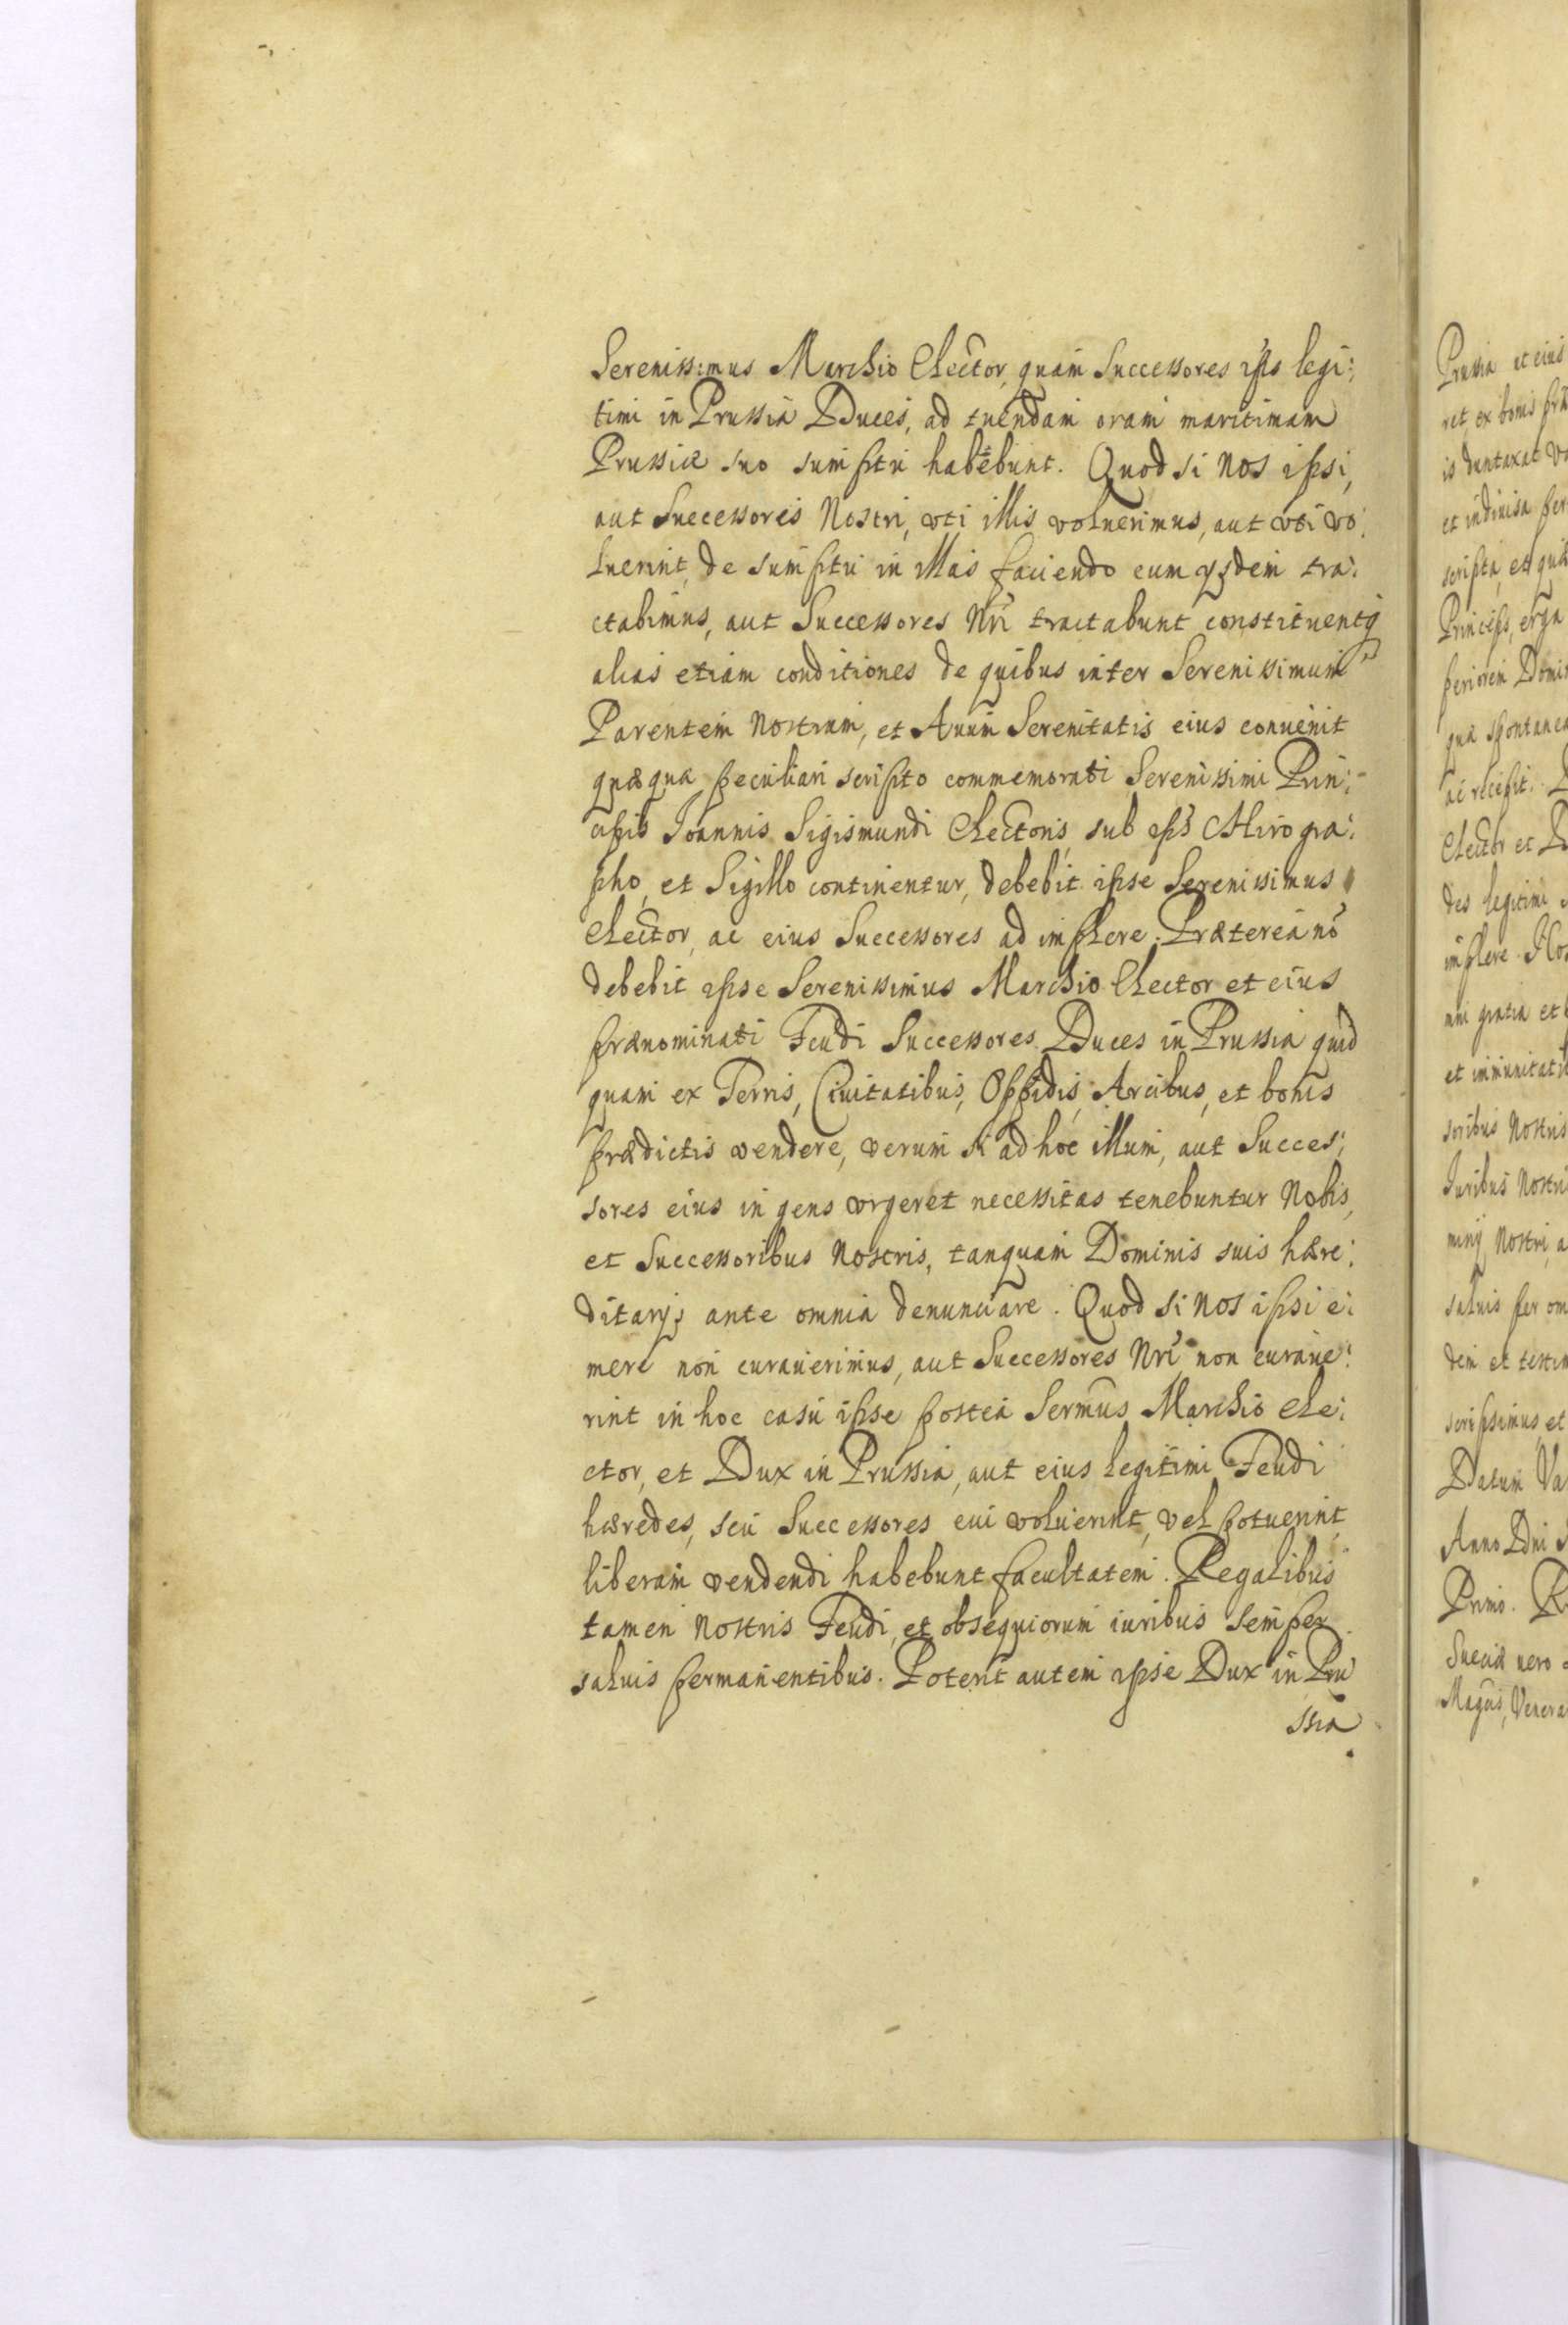 Serenissimus Marchio Elector, quam Successores ips legi:
timi in Prussia Duces, ad tuendam oram maritimam
Prussiæ suo sumptu habebunt. Quod si nos ipsi,
aut Successores Nostri, vti illis voluerimus, aut vti vo:
luerint, de sumptu in illas faciendo cum ysdem tra:
ctabimus, aut Successores Nri tractabunt constituentq
alias etiam conditiones de quibus inter Serenissimum
Parentem Nostrum, et Auum Serenitatis eius conuenit
quæque peculiari scripto commemorati Serenissimi Prin:
cipis Ioannis Sigismundi Electoris, sub ips Chirogra:
pho, et Sigillo continentur, debebit ipse Serenissimus
Elector, ac eius Successores ad implere. Præterea nō
debebit ipse Serenissimus Marchio Elector et eius
prænominati Feudi Successores Duces in Prussia quid
quam ex Terris, Ciuitatibus, Oppidis, Arcibus, et bonis
prædictis vendere, verum si ad hoc illum, aut Succes:
sores eius in gens vrgeret necessitas tenebuntur Nobis,
et Successoribus Nostris, tanquam Dominis suis hære:
ditarys ante omnia denunciare. Quod si nos ipsi e:
mere non curauerimus, aut Successores Nri non curaue:
rint in hoc casu ipse postea Sermus Marchio Ele:
ctor, et Dux in Prussia, aut eius legitimi Feudi
hæredes, seu Successores cui voluerint, vel potuerint,
liberam vendendi habebunt facultatem. Regalibus
tamen Nostris Feudi, et obsequiorum iuribus semper
saluis permanentibus. Poterit autem ipse Dux in Pru
ssia
Prussia et eius
ret ex bonis
is duntaxat
et indiuisa
scripta, et
Princeps, erga
periorem
quæ spontanea
ac recepit.
Elector et
des legitimi
implere.
gratia et
et immunitati
soribus Nostris
Iuribus Nostri
miny Nostri, a
saluis per om
dem et testim
scripsimus, et
Datum Va
Anno Dni
Primo.
Sueciæ vero
Magcis, Venera